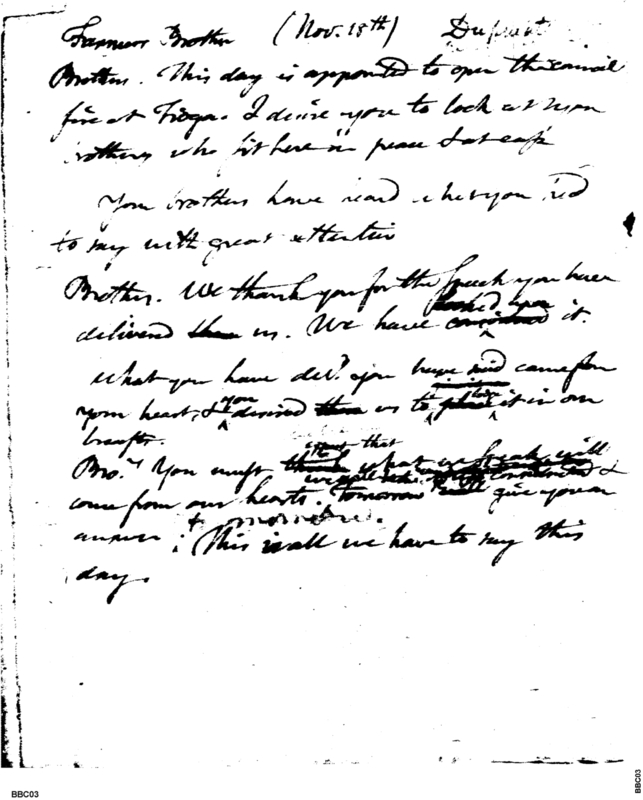 Farmers Brother (Nov. 18th)
Brothers. This day is appointed to open the council
fire at Tioga. I desire you to look at your
brothers who sit here in peace & at ease
Your brothers have heard what you had
to say with great attention
Brother. We thank you for the speech you have
looked upon
delivered them us. We have considered it.
What you have deld. you have said came from
you
your heart, & desired them us to place it in our
breasts.
that
Bror. You must think what we speak will
come from our hearts. Tomorrow will give you an
answer tomorrow. This is all we have to say this
day.
BBC03
BBC03